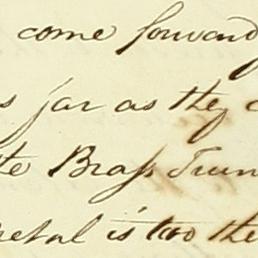 come forward
s far as they
te Brass
metal is too the